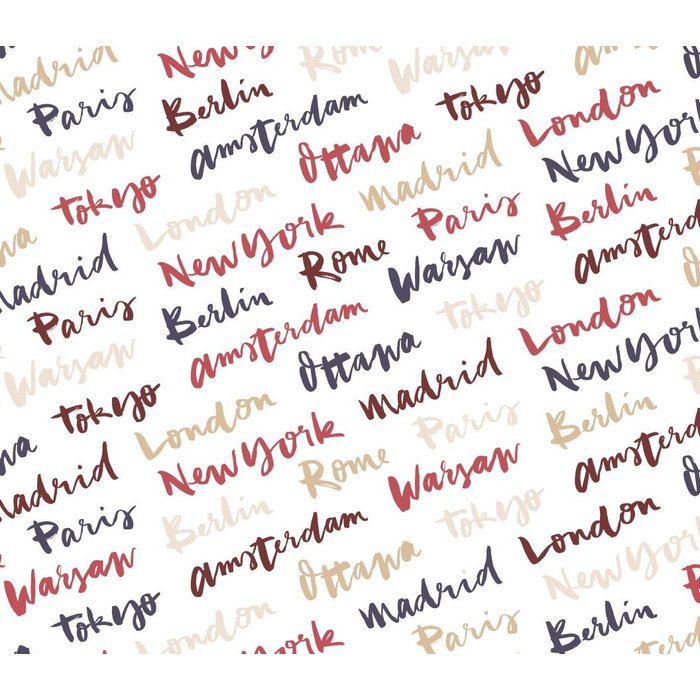 Madrid New York Rome Warsaw Amsterdam
Paris Berlin Amsterdam Tokyo London
Warsaw Tokyo London Ottawa Madrid New York
Madrid New York Rome Paris Berlin
Paris Berlin Amsterdam Warsaw Amsterdam
Warsaw Tokyo London Ottawa Tokyo London
Madrid New York Rome Madrid New York
Paris Berlin Amsterdam Paris Berlin
Warsaw Tokyo London Ottawa Warsaw Amsterdam
New York Madrid Tokyo London
Paris Berlin New York